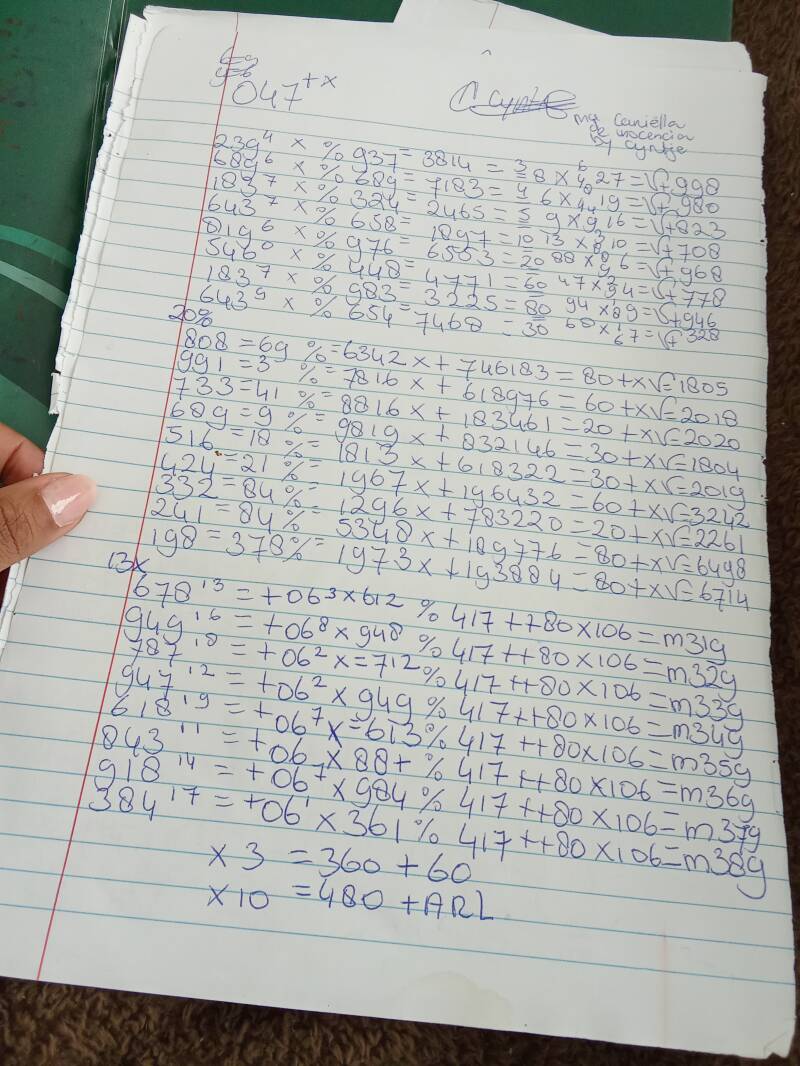 047+x
mge Caniëlla
de inocencia
by Cyntje
239⁴ x % 937 = 3814 = 3 8 x 6/4 27 = √+998
689⁶ x % 689 = 7183 = 4 6 x 19 = √+980
1837⁷ x % 324 = 2465 = 5 9 x 16 = √+823
643⁷ x % 658 = 1897 = 10 13 x 10 = √+708
819⁶ x % 976 = 6553 = 20 88 x 6 = √+968
546⁰ x % 448 = 4771 = 60 47 x 34 = √+778
183⁷ x % 983 = 3225 = 80 94 x 89 = √+946
643⁹ x % 654 = 7468 = 30 68 x 1/67 = √+328
20%
808 = 69 % = 6342 x + 746183 = 80 + x√ = 1805
991 = 3 % = 7816 x + 618976 = 60 + x√ = 2018
733 = 41 % = 8816 x + 183461 = 20 + x√ = 2020
689 = 9 % = 9819 x + 832146 = 30 + x√ = 1804
516 = 18 % = 1813 x + 618322 = 30 + x√ = 2019
424 = 21 % = 1967 x + 196432 = 60 + x√ = 3242
332 = 84 % = 1296 x + 783220 = 20 + x√ = 2261
241 = 84 % = 5348 x + 189776 = 80 + x√ = 6498
198 = 378% = 1973 x + 193884 = 80 + x√ = 6714
13x
678¹³ = +06³ x 612 % 417 ++80 x 106 = m31g
949¹⁶ = +06⁸ x 948 % 417 ++80 x 106 = m32g
787¹⁸ = +06² x = 712 % 417 ++80 x 106 = m33g
947¹² = +06² x 949 % 417 ++80 x 106 = m34g
618¹⁹ = +06⁷ x = 613 % 417 ++80 x 106 = m35g
843¹¹ = +06 x 88+ % 417 ++80 x 106 = m36g
918¹⁴ = +06⁷ x 984 % 417 ++80 x 106 = m37g
384¹⁷ = +06¹ x 361 % 417 ++80 x 106 = m38g
x 3 = 360 + 60
x 10 = 480 + ARL